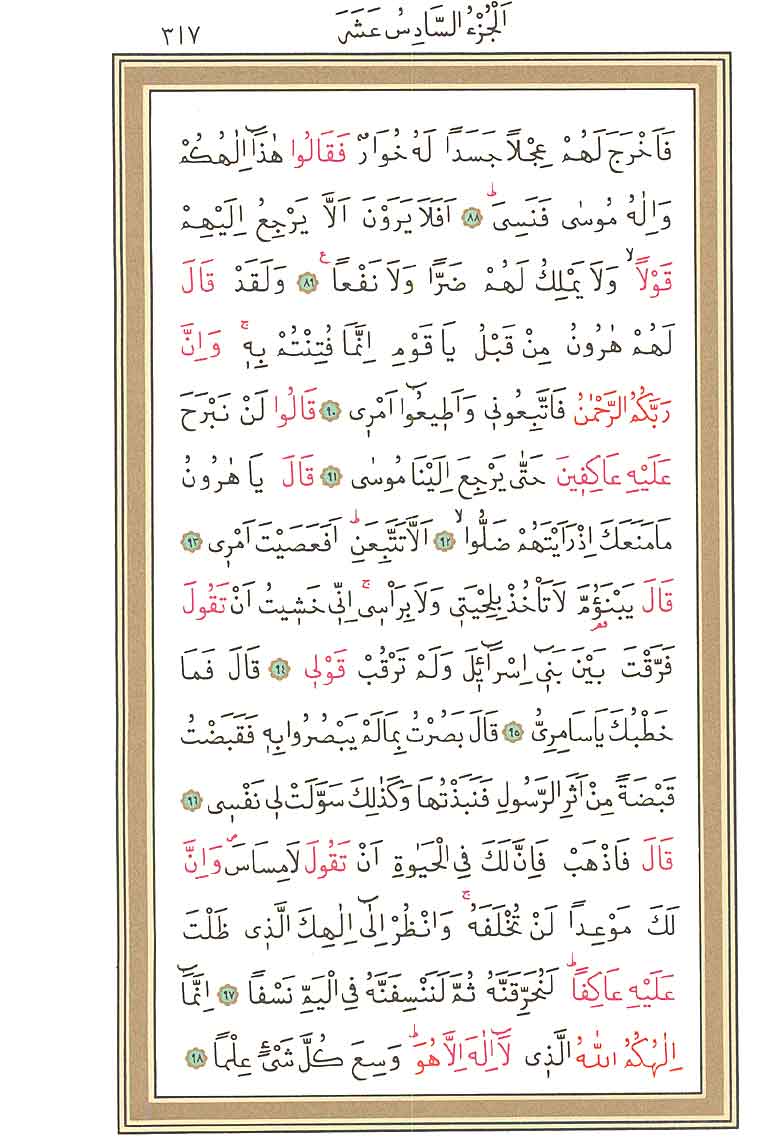 اَلْجُزْءُ السَّادِسُ عَشَرَ
٣١٧
فَاَخْرَجَ لَهُمْ عِجْلاً جَسَدًا لَهُ خُوَارٌ فَقَالُوا هٰذَٓا اِلٰهُكُمْ
وَاِلٰهُ مُوسٰى فَنَسِىَۜ ﴿٨٨﴾ اَفَلَا يَرَوْنَ اَلَّا يَرْجِعُ اِلَيْهِمْ
قَوْلاًۙ وَلَا يَمْلِكُ لَهُمْ ضَرًّا وَلَا نَفْعًاࣖ ﴿٨٩﴾ وَلَقَدْ قَالَ
لَهُمْ هٰرُونُ مِنْ قَبْلُ يَا قَوْمِ اِنَّمَا فُتِنْتُمْ بِه۪ۚ وَاِنَّ
رَبَّكُمُ الرَّحْمٰنُ فَاتَّبِعُون۪ى وَاَط۪يعُٓوا اَمْر۪ى ﴿٩٠﴾ قَالُوا لَنْ نَبْرَحَ
عَلَيْهِ عَاكِف۪ينَ حَتّٰى يَرْجِعَ اِلَيْنَا مُوسٰى ﴿٩١﴾ قَالَ يَا هٰرُونُ
مَا مَنَعَكَ اِذْ رَاَيْتَهُمْ ضَلُّواۙ ﴿٩٢﴾ اَلَّا تَتَّبِعَنِۜ اَفَعَصَيْتَ اَمْر۪ى ﴿٩٣﴾
قَالَ يَبْنَؤُ۬مَّ لَا تَأْخُذْ بِلِحْيَت۪ى وَلَا بِرَاْس۪ىۚ اِنّ۪ى خَش۪يتُ اَنْ تَقُولَ
فَرَّقْتَ بَيْنَ بَن۪ٓى اِسْرَٓائ۪لَ وَلَمْ تَرْقُبْ قَوْل۪ى ﴿٩٤﴾ قَالَ فَمَا
خَطْبُكَ يَا سَامِرِىُّ ﴿٩٥﴾ قَالَ بَصُرْتُ بِمَا لَمْ يَبْصُرُوا بِه۪ فَقَبَضْتُ
قَبْضَةً مِنْ اَثَرِ الرَّسُولِ فَنَبَذْتُهَا وَكَذٰلِكَ سَوَّلَتْ ل۪ى نَفْس۪ى ﴿٩٦﴾
قَالَ فَاذْهَبْ فَاِنَّ لَكَ فِى الْحَيٰوةِ اَنْ تَقُولَ لَا مِسَاسَۖ وَاِنَّ
لَكَ مَوْعِدًا لَنْ تُخْلَفَهُۚ وَانْظُرْ اِلٰٓى اِلٰهِكَ الَّذ۪ى ظَلْتَ
عَلَيْهِ عَاكِفًاۜ لَنُحَرِّقَنَّهُ ثُمَّ لَنَنْسِفَنَّهُ فِى الْيَمِّ نَسْفًا ﴿٩٧﴾ اِنَّمَٓا
اِلٰهُكُمُ اللّٰهُ الَّذ۪ى لَٓا اِلٰهَ اِلَّا هُوَۜ وَسِعَ كُلَّ شَىْءٍ عِلْمًا ﴿٩٨﴾